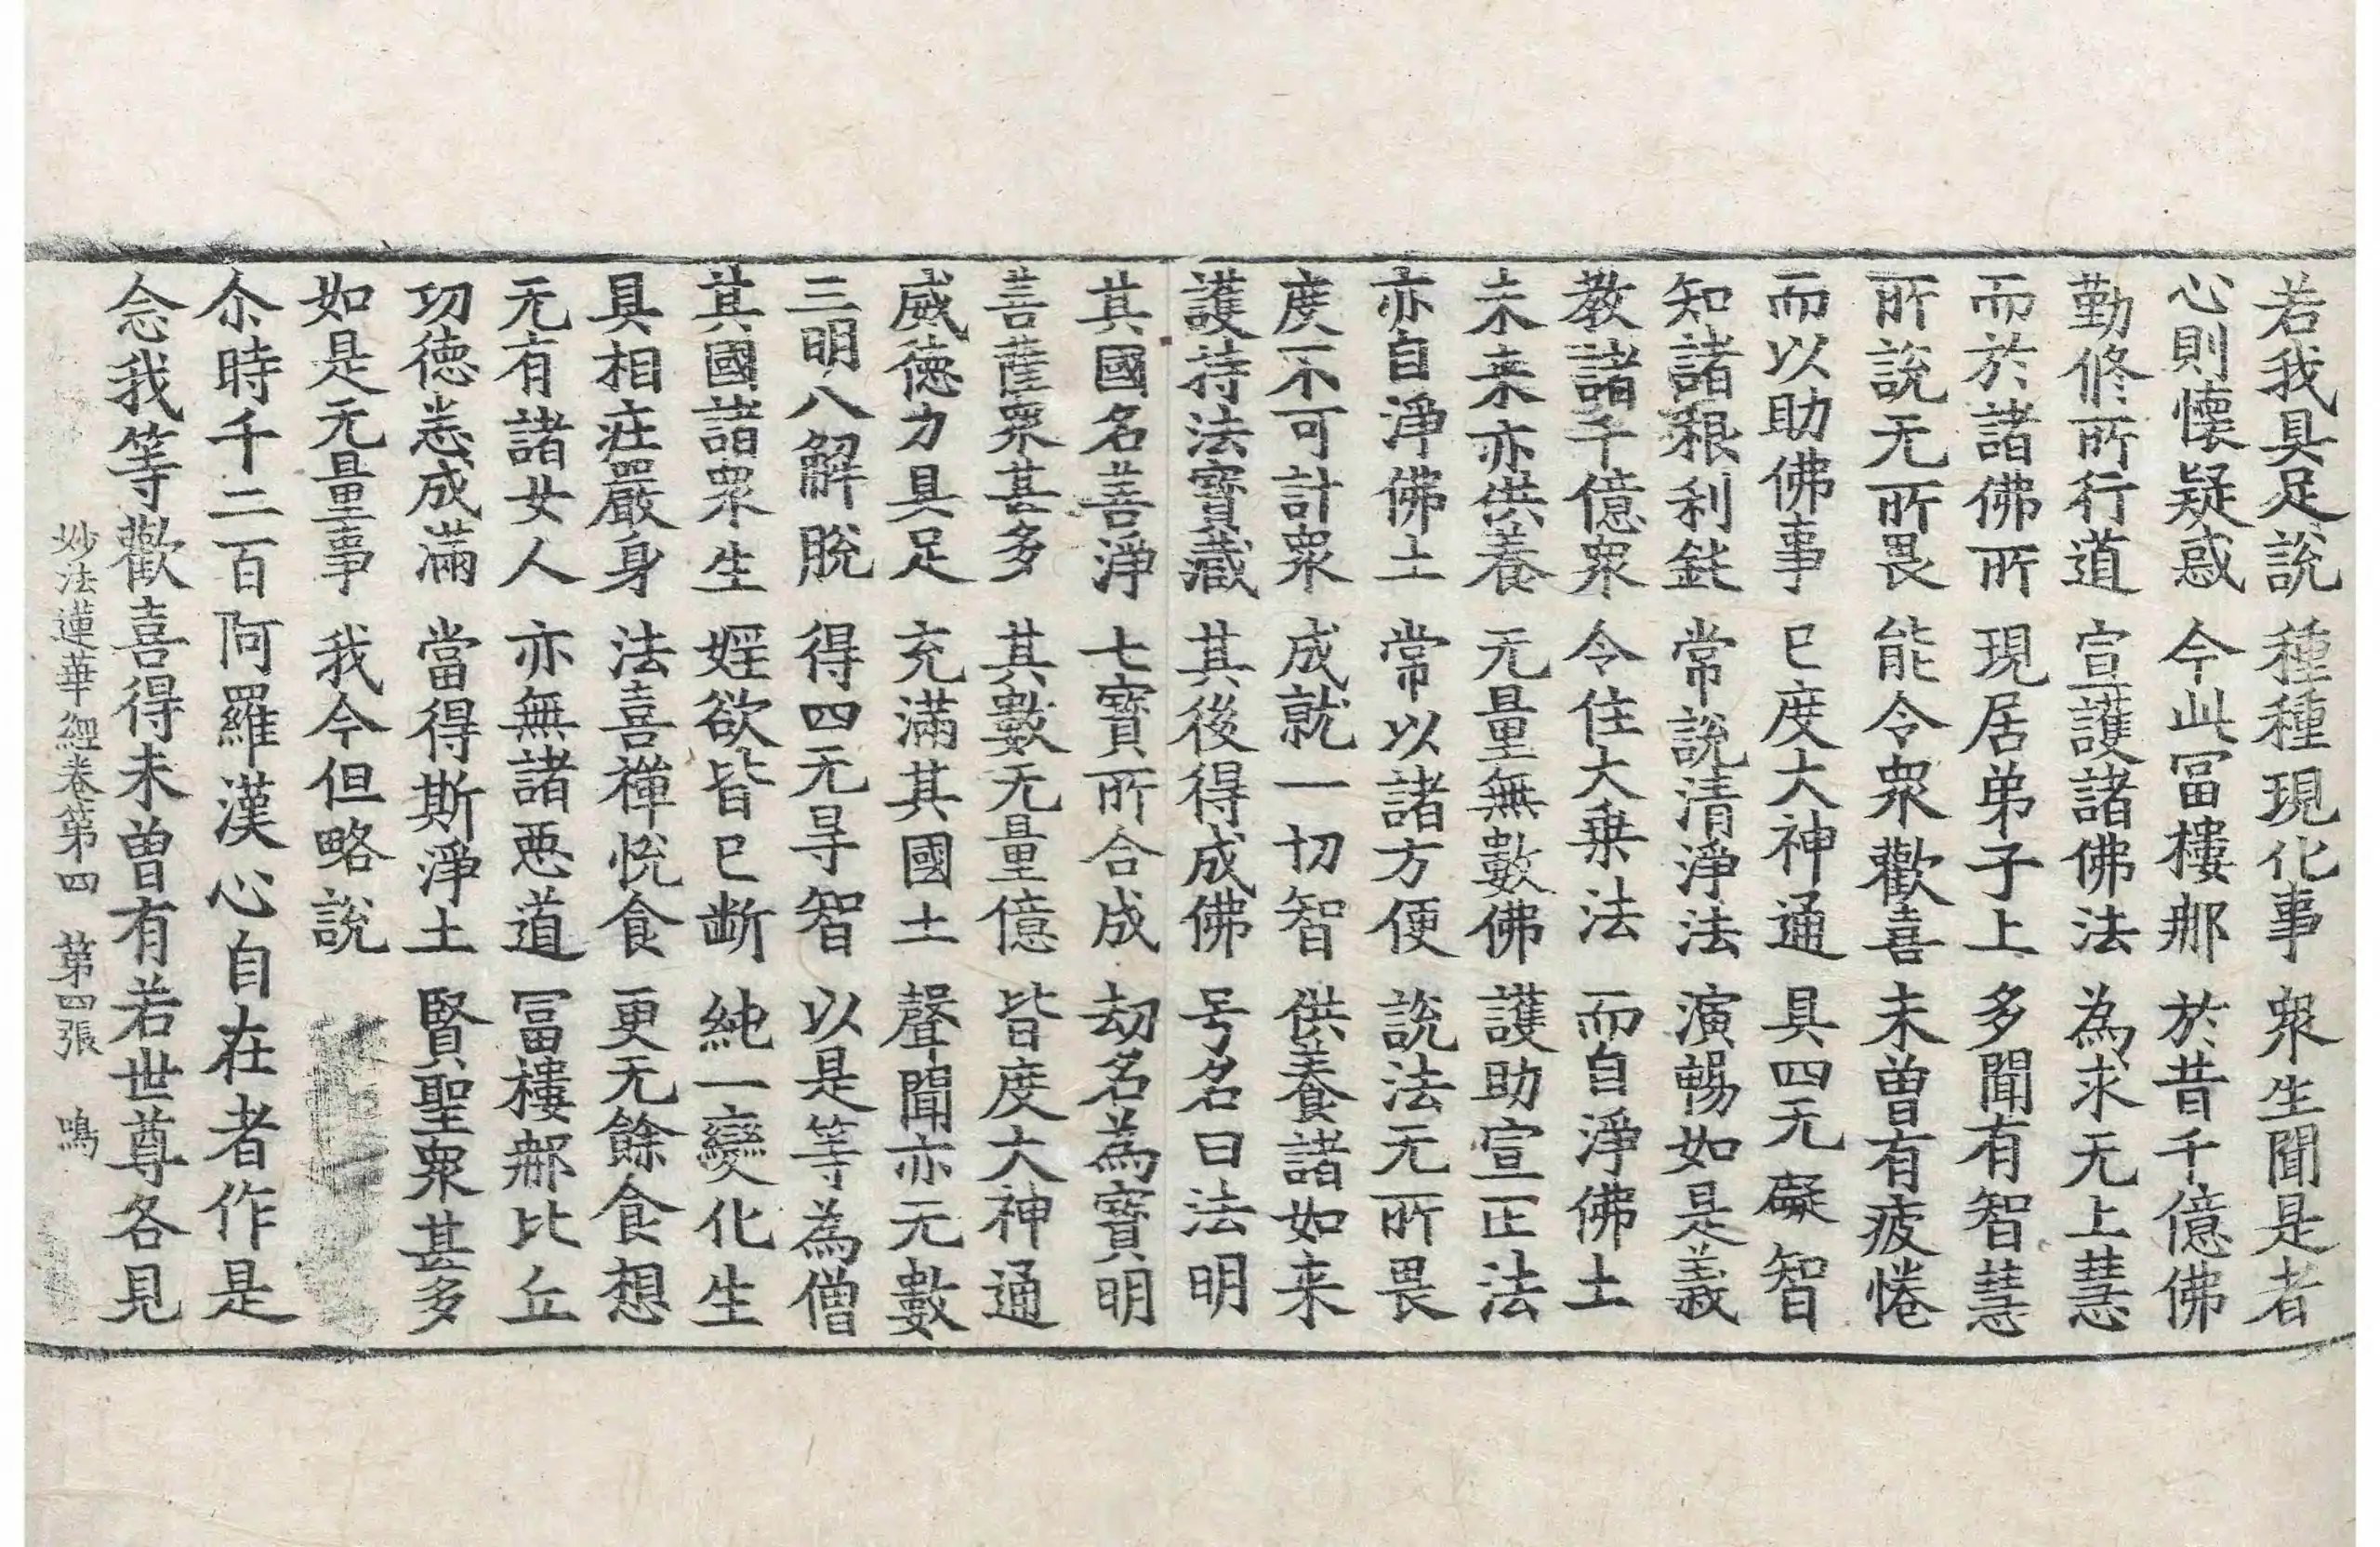 若我具足說　種種現化事　衆生聞是者
心則懷疑惑　今此冨樓那　於昔千億佛
勤修所行道　宣護諸佛法　為求无上慧
而於諸佛所　現居弟子上　多聞有智慧
所說无所畏　能令衆歡喜　未曾有疲惓
而以助佛事　已度大神通　具四无礙智
知諸根利鈍　常說清淨法　演暢如是義
教諸千億衆　令住大乗法　而自淨佛土
未来亦供養　无量無數佛　護助宣正法
亦自淨佛土　常以諸方便　說法无所畏
度不可計衆　成就一切智　供養諸如来
護持法寳藏　其後得成佛　号名曰法明
其國名善淨　七寳所合成　劫名為寳明
菩薩衆甚多　其數无量億　皆度大神通
威德力具足　充滿其國土　聲聞亦无數
三明八解脫　得四无㝵智　以是等為僧
其國諸衆生　婬欲皆已断　純一變化生
具相莊嚴身　法喜禪悅食　更无餘食想
无有諸女人　亦無諸惡道　冨樓那比丘
功德悉成滿　當得斯淨土　賢聖衆甚多
如是无量事　我今但略說
尒時千二百阿羅漢心自在者作是
念我等歡喜得未曾有若世尊各見
妙法蓮華經卷第四　第四張　鳴